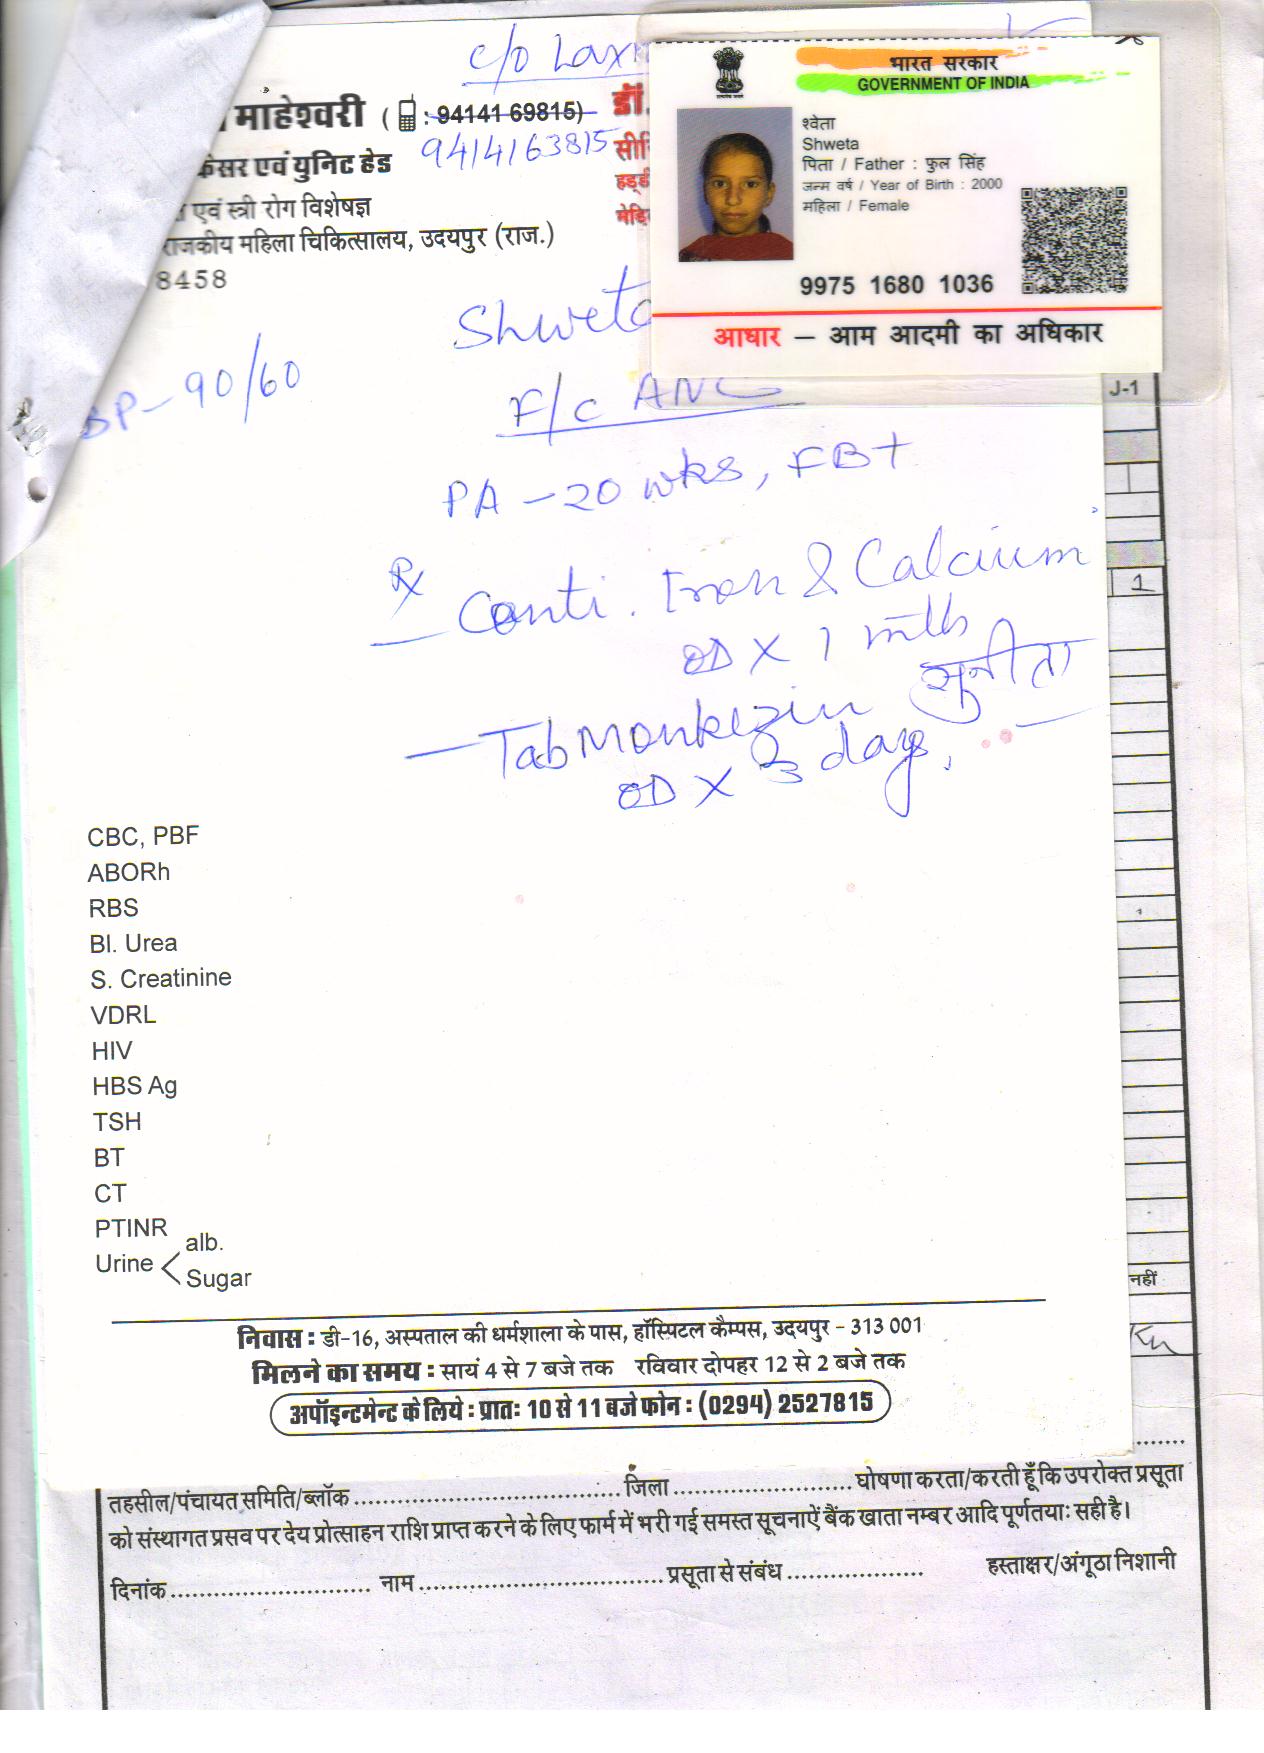 c/o Lax
माहेश्वरी ( : 94141 69815)
9414163815
एवं युनिट हेड
एवं स्त्री रोग विशेषज्ञ
राजकीय महिला चिकित्सालय, उदयपुर (राज.)
8458
डॉ.
भारत सरकार
GOVERNMENT OF INDIA
श्वेता
Shweta
पिता / Father : फुल सिंह
जन्म वर्ष / Year of Birth : 2000
महिला / Female
9975 1680 1036
आधार – आम आदमी का अधिकार
J-1
Shweta
BP – 90/60
F/c ANC
PA – 20 wks, FB+
Rx
– Conti. Iron & Calcium
OD X 1 mth
सुनीता
– Tab Monkezin
OD X 3 days,
1
CBC, PBF
ABORh
RBS
Bl. Urea
S. Creatinine
VDRL
HIV
HBS Ag
TSH
BT
CT
PTINR
Urine < alb.
Sugar
नहीं
निवास : डी-16, अस्पताल की धर्मशाला के पास, हॉस्पिटल कैम्पस, उदयपुर - 313 001
मिलने का समय : सायं 4 से 7 बजे तक रविवार दोपहर 12 से 2 बजे तक
अपॉइन्टमेन्ट के लिये : प्रातः 10 से 11 बजे फोन : (0294) 2527815
तहसील/पंचायत समिति/ब्लॉक ........................................ जिला ........................... घोषणा करता/करती हूँ कि उपरोक्त प्रसूता
को संस्थागत प्रसव पर देय प्रोत्साहन राशि प्राप्त करने के लिए फार्म में भरी गई समस्त सूचनाऐं बैंक खाता नम्बर आदि पूर्णतयाः सही है।
दिनांक .............................. नाम .................................... प्रसूता से संबंध .................... हस्ताक्षर/अंगूठा निशानी